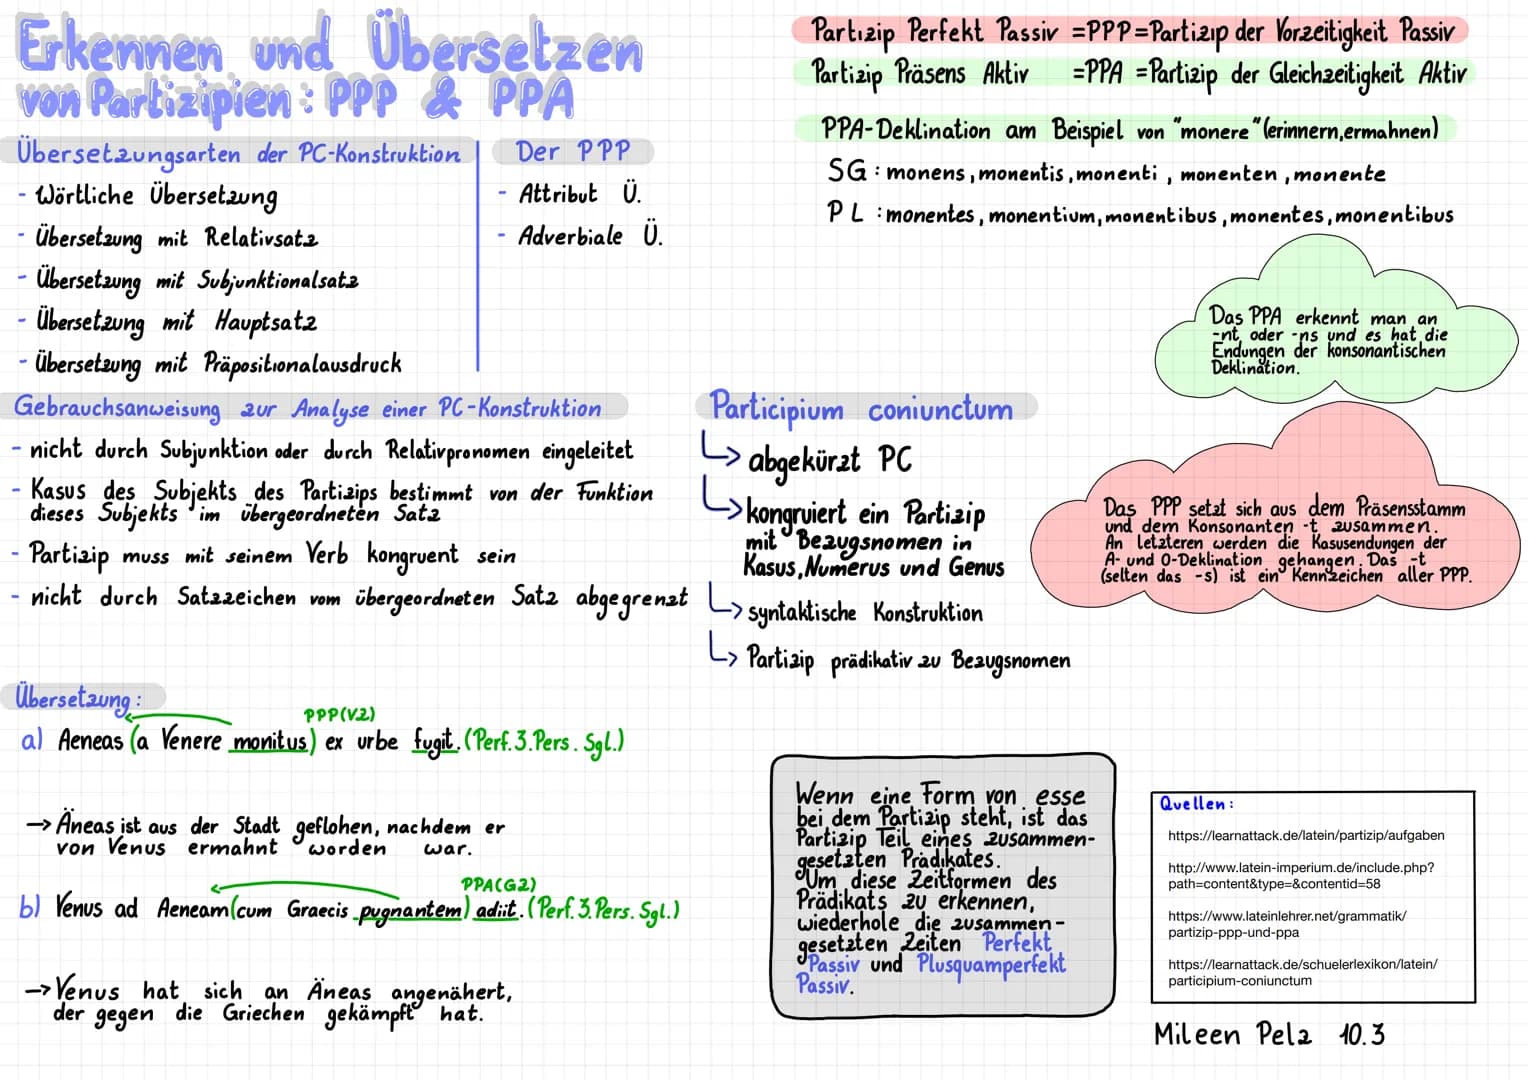 Erkennen und Übersetzen
von Partizipien: PPP & PPA
Übersetzungsarten der PC-Konstruktion
- Wörtliche Übersetzung
- Übersetzung mit Relativsatz
- Übersetzung mit Subjunktionalsatz
- Übersetzung mit Hauptsatz
- Übersetzung mit Präpositionalausdruck
Der PPP
- Attribut Ü.
- Adverbiale Ü.
Partizip Perfekt Passiv =PPP=Partizip der Vorzeitigkeit Passiv
Partizip Präsens Aktiv =PPA =Partizip der Gleichzeitigkeit Aktiv
PPA-Deklination am Beispiel von "monere"(erinnern,ermahnen)
SG : monens, monentis, monenti, monenten, monente
PL : monentes, monentium, monentibus, monentes, monentibus
Das PPA erkennt man an
-nt, oder -ns und es hat die
Endungen der konsonantischen
Deklination.
Gebrauchsanweisung zur Analyse einer PC-Konstruktion
- nicht durch Subjunktion oder durch Relativpronomen eingeleitet
- Kasus des Subjekts des Partizips bestimmt von der Funktion
dieses Subjekts im übergeordneten Satz
- Partizip muss mit seinem Verb kongruent sein
- nicht durch Satzzeichen vom übergeordneten Satz abgegrenzt
Participium coniunctum
↳ abgekürzt PC
↳ kongruiert ein Partizip
mit Bezugsnomen in
Kasus, Numerus und Genus
↳ syntaktische Konstruktion
↳ Partizip prädikativ zu Bezugsnomen
Das PPP setzt sich aus dem Präsensstamm
und dem Konsonanten -t zusammen.
An letzteren werden die Kasusendungen der
A- und O-Deklination gehangen. Das -t
(selten das -s) ist ein Kennzeichen aller PPP.
Übersetzung:
PPP(VZ)
a) Aeneas (a Venere monitus) ex urbe fugit. (Perf. 3. Pers. Sgl.)
→ Äneas ist aus der Stadt geflohen, nachdem er
von Venus ermahnt worden war.
PPA(GZ)
b) Venus ad Aeneam (cum Graecis pugnantem) adiit. (Perf. 3. Pers. Sgl.)
→ Venus hat sich an Äneas angenähert,
der gegen die Griechen gekämpft hat.
Wenn eine Form von esse
bei dem Partizip steht, ist das
Partizip Teil eines zusammen-
gesetzten Prädikates.
Um diese Zeitformen des
Prädikats zu erkennen,
wiederhole die zusammen-
gesetzten Zeiten Perfekt
Passiv und Plusquamperfekt
Passiv.
Quellen:
https://learnattack.de/latein/partizip/aufgaben
http://www.latein-imperium.de/include.php?
path=content&type=&contentid=58
https://www.lateinlehrer.net/grammatik/
partizip-ppp-und-ppa
https://learnattack.de/schuelerlexikon/latein/
participium-coniunctum
Mileen Pelz 10.3